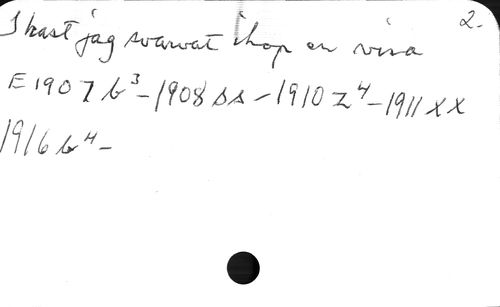 2.
I hast jag svarvat ihop en visa
E 1907 b³ - 1908 ss - 1910 z⁴ - 1911 xx
1916 b⁴ -